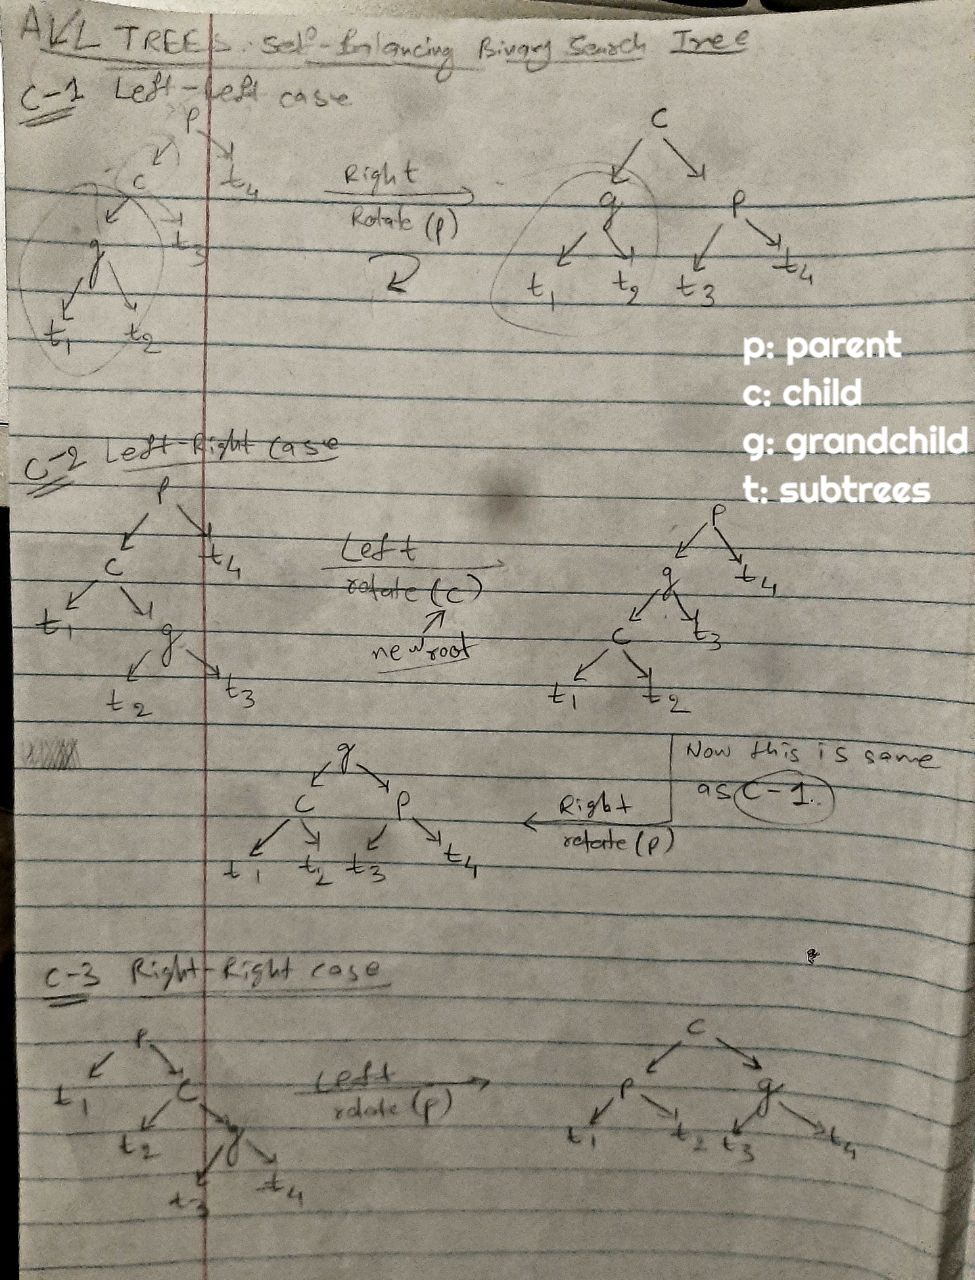 AVL TREES. Self-Balancing Binary Search Tree
C-1 Left-Left case
p
c t4
g t3
t1 t2
Right
Rotate (p)
c
g p
t1 t2 t3 t4
p: parent
c: child
g: grandchild
t: subtrees
C-2 Left-Right case
p
c t4
t1 g
t2 t3
Left
rotate (c)
new root
p
g t4
c t3
t1 t2
Now this is same
as C-1.
Right
rotate (p)
g
c p
t1 t2 t3 t4
C-3 Right-Right case
p
t1 c
t2 g
t3 t4
Left
rotate (p)
c
p g
t1 t2 t3 t4